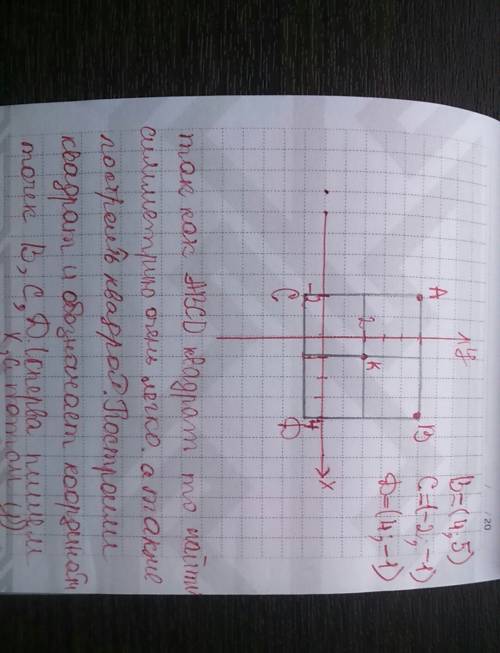 20
B=(4;5)
C=(-2;-1)
D=(4;-1)
1y
A
B
2
K
-2
4
X
C
D
так как ABCD квадрат то найти
симметрию очень легко. а также
построить квадрат. Построим
квадрат и обозначает координат
точек B, C, D (сперва пишем
x, а потом y)